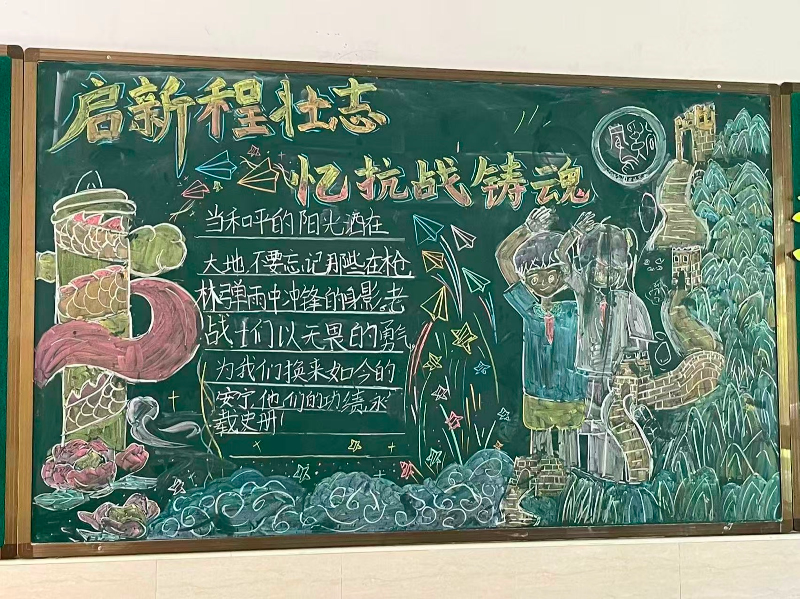 启新程壮志
忆抗战铸魂
当和平的阳光洒在
大地,不要忘记那些在枪
林弹雨中冲锋的身影。老
战士们以无畏的勇气
为我们换来如今的
安宁,他们的功绩,永
载史册!